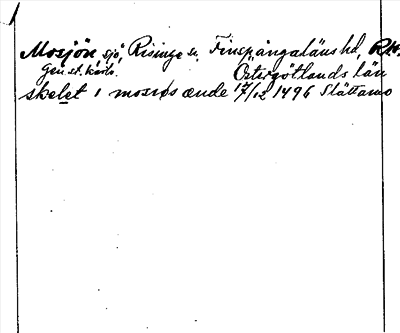 Mosjön, sjö, Risinge sn, Finspångaläns hd, RA.
Gen. st. karta. Östergötlands län
skelet i mosiøs ænde 17/12 1496 Slättamo